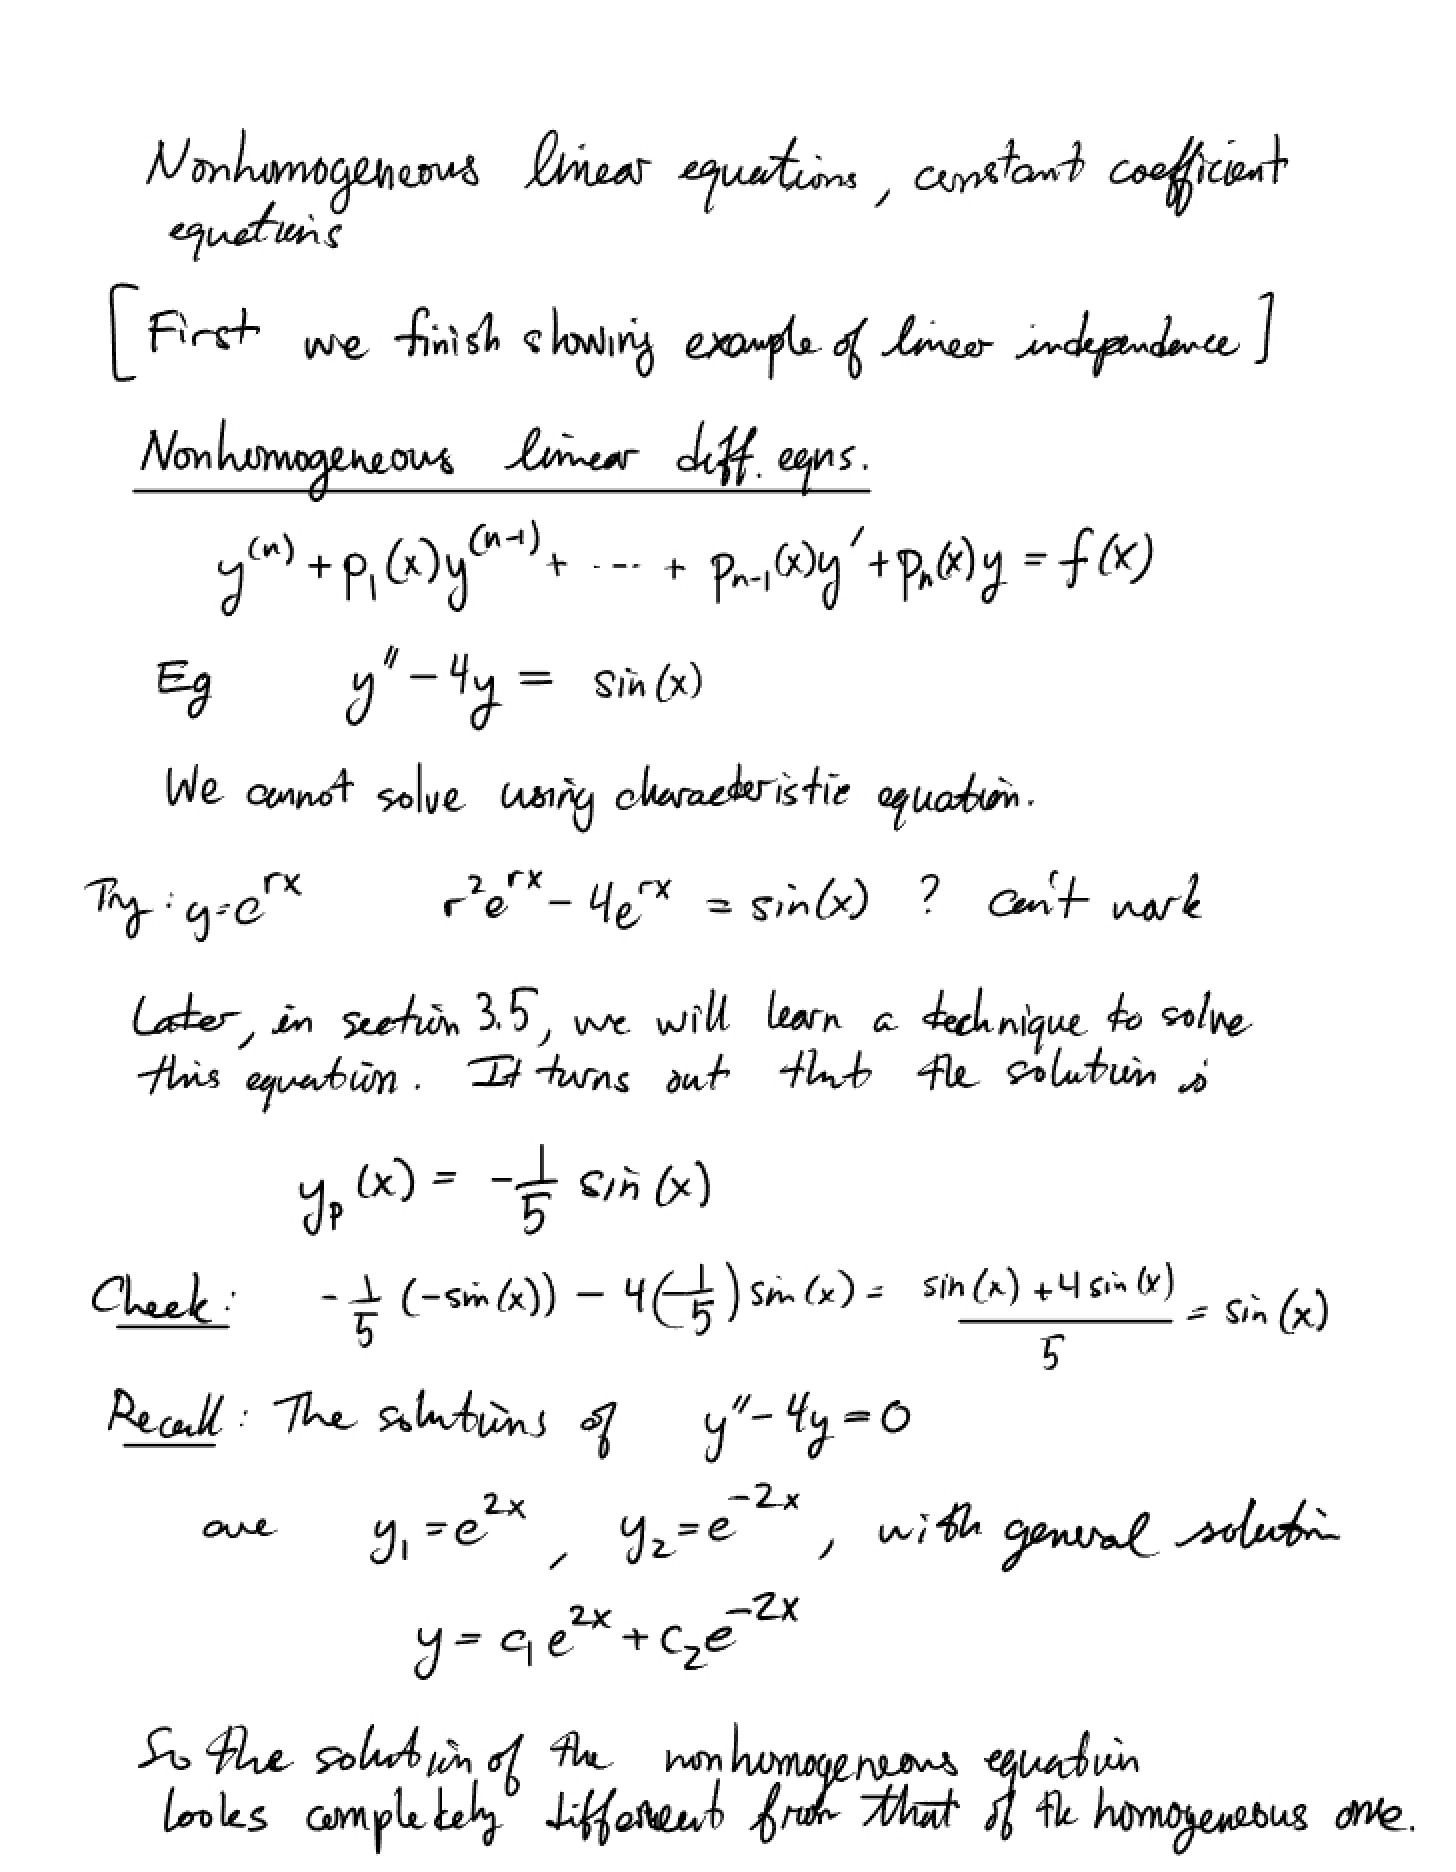 Nonhomogeneous linear equations, constant coefficient
equations
[First we finish showing example of linear independence]
Nonhomogeneous linear diff. eqns.
y^(n) + p₁(x)y^(n-1) + ---- + pₙ₋₁(x)y' + pₙ(x)y = f(x)
Eg y'' - 4y = sin(x)
We cannot solve using characteristic equation.
Try: y=e^{rx} r²e^{rx} - 4e^{rx} = sin(x) ? can't work
Later, in section 3.5, we will learn a technique to solve
this equation. It turns out that the solution is
y_p(x) = -1/5 sin(x)
Check: -1/5 (-sin(x)) - 4(-1/5) sin(x) = (sin(x) + 4 sin(x))/5 = sin(x)
Recall: The solutions of y'' - 4y = 0
are y₁ = e^{2x}, y₂ = e^{-2x}, with general solution
y = c₁e^{2x} + c₂e^{-2x}
So the solution of the nonhomogeneous equation
looks completely different from that of the homogeneous one.